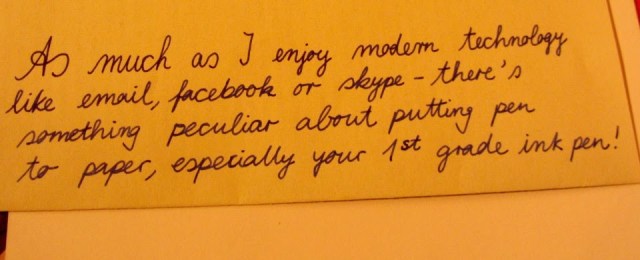 As much as I enjoy modern technology
like email, facebook or skype - there's
something peculiar about putting pen
to paper, especially your 1st grade ink pen!